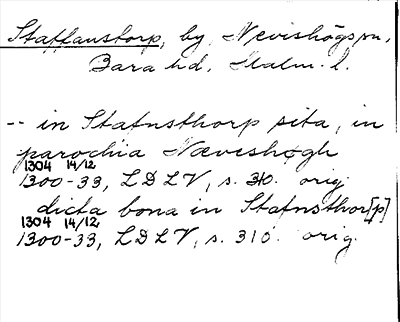 Staffanstorp, by, Nevishögs sn,
Bara hd, Malm. l.
-- in Statnsthorp sita, in
parochia Næveshøgh
1304 14/12
1300-33, LDLV, s. 310. orig.
dicta bona in Statnsthor[p]
1304 14/12
1300-33, LDLV, s. 310. orig.